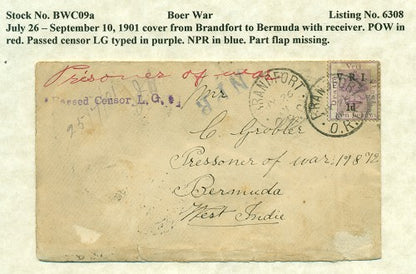 Stock No. BWC09a Boer War Listing No. 6308
July 26 – September 10, 1901 cover from Brandfort to Bermuda with receiver. POW in
red. Passed censor LG typed in purple. NPR in blue. Part flap missing.
Prisoner of war
Passed Censor L.G.
NPR
BRANDFORT
BRANDFORT
O.R.C.
V.R.I.
1d
Mr
C. Grobler
Pressoner of war 17872
Bermuda
West Indie